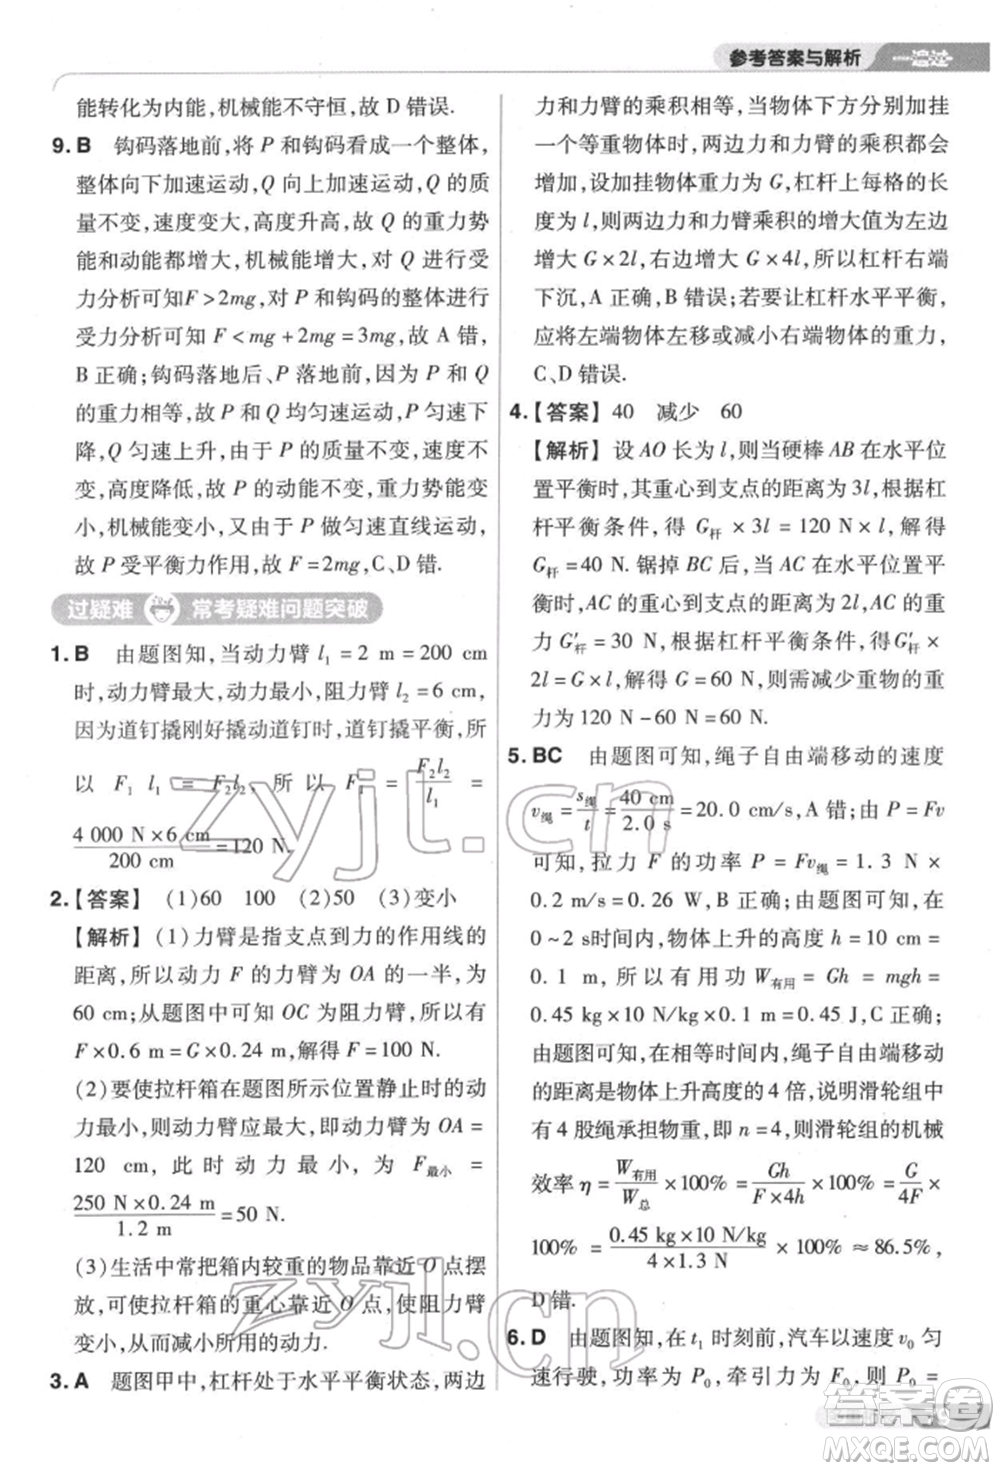 参考答案与解析 一遍过
能转化为内能,机械能不守恒,故 D 错误.
9. B 钩码落地前,将 P 和钩码看成一个整体,
整体向下加速运动,Q 向上加速运动,Q 的质
量不变,速度变大,高度升高,故 Q 的重力势
能和动能都增大,机械能增大,对 Q 进行受
力分析可知F>2mg,对 P 和钩码的整体进行
受力分析可知 F<mg+2mg=3mg,故 A 错,
B 正确;钩码落地后、P 落地前,因为 P 和 Q
的重力相等,故 P 和 Q 均匀速运动,P 匀速下
降,Q 匀速上升,由于 P 的质量不变,速度不
变,高度降低,故 P 的动能不变,重力势能变
小,机械能变小,又由于 P 做匀速直线运动,
故 P 受平衡力作用,故 F=2mg,C、D 错.
过疑难 常考疑难问题突破
1. B 由题图知,当动力臂 l₁=2 m=200 cm
时,动力臂最大,动力最小,阻力臂 l₂=6 cm,
因为道钉撬刚好撬动道钉时,道钉撬平衡,所
以 F₁ l₁ = F₂l₂, 所以 F₁ = F₂l₂/l₁ =
4 000 N×6 cm/200 cm=120 N.
2.【答案】 (1)60 100 (2)50 (3)变小
【解析】 (1)力臂是指支点到力的作用线的
距离,所以动力 F 的力臂为 OA 的一半,为
60 cm;从题图中可知 OC 为阻力臂,所以有
F×0.6 m=G×0.24 m,解得 F=100 N.
(2)要使拉杆箱在题图所示位置静止时的动
力最小,则动力臂应最大,即动力臂为 OA=
120 cm,此时动力最小,为 F最小 =
250 N×0.24 m/1.2 m=50 N.
(3)生活中常把箱内较重的物品靠近 O 点摆
放,可使拉杆箱的重心靠近 O 点,使阻力臂
变小,从而减小所用的动力.
3. A 题图甲中,杠杆处于水平平衡状态,两边
力和力臂的乘积相等,当物体下方分别加挂
一个等重物体时,两边力和力臂的乘积都会
增加,设加挂物体重力为 G,杠杆上每格的长
度为 l,则两边力和力臂乘积的增大值为左边
增大 G×2l,右边增大 G×4l,所以杠杆右端
下沉,A 正确,B 错误;若要让杠杆水平平衡,
应将左端物体左移或减小右端物体的重力,
C、D 错误.
4.【答案】 40 减少 60
【解析】 设 AO 长为 l,则当硬棒 AB 在水平位
置平衡时,其重心到支点的距离为 3l,根据杠
杆平衡条件,得 G杆×3l=120 N×l,解得
G杆=40 N.锯掉 BC,当剩下的 AC 在水平位
置平衡时,AC 的重心到支点的距离为 2l,AC
的重为 G′杆=30 N,根据杠杆平衡条件,得 G′杆×
2l=G×l,解得 G=60 N,则需减少重物的重
力为 120 N-60 N=60 N.
5. BC 由题图可知,绳子自由端移动的速度
v绳=s绳/t=40 cm/2.0 s=20.0 cm/s,A 错;由 P=Fv
可知,拉力 F 的功率 P=Fv绳=1.3 N×
0.2 m/s=0.26 W,B 正确;由题图可知,在
0~2 s时间内,物体上升的高度 h=10 cm=
0.1 m,所以有用功 W有用 = Gh = mgh =
0.45 kg×10 N/kg×0.1 m=0.45 J,C 正确;
由题图可知,在相等时间内,绳子自由端移动
的距离是物体上升高度的 4 倍,说明滑轮组中
有 4 股绳承担物重,即 n=4,则滑轮组的机械
效率 η=W有用/W总×100%=Gh/F×4h×100%=G/4F×
100%=0.45 kg×10 N/kg/4×1.3 N×100%≈86.5%,
D 错.
6. D 由题图知,在 t₁ 时刻前,汽车以速度 v₀ 匀
速行驶,功率为 P₀,牵引力为 F₀,则 P₀ =
zyjl.cn
zyjl.cn
答案圈
MXQE.COM